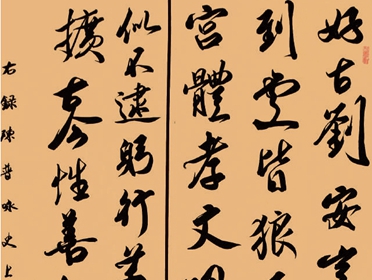 好古劉安
到處皆狼
宮體孝文
似不逮躬行
擴充性善
右錄陳普詠史上